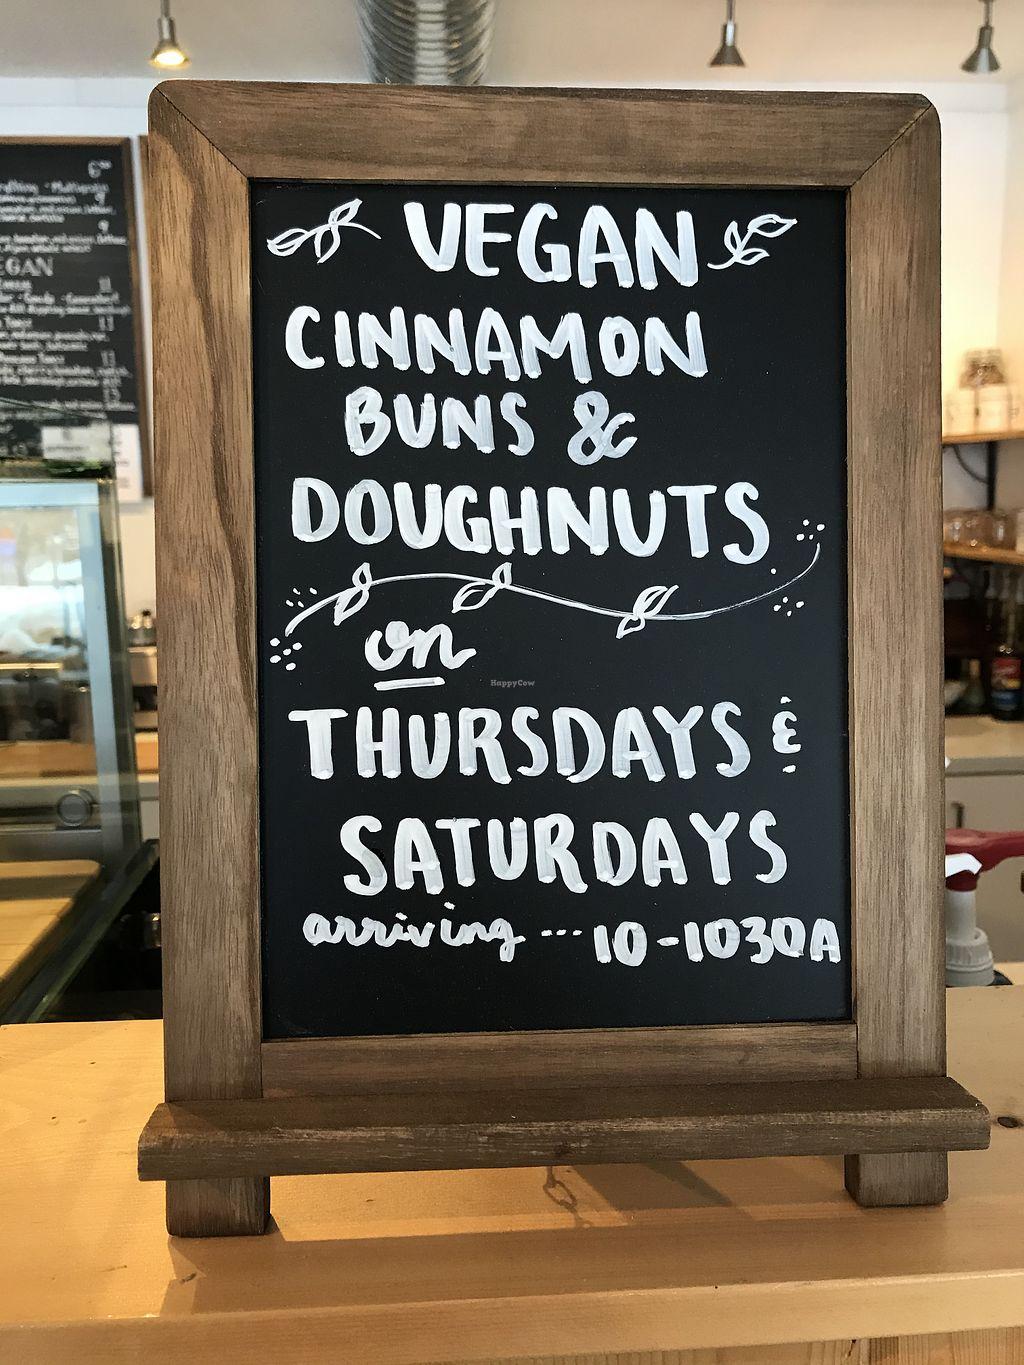 VEGAN
CINNAMON
BUNS &
DOUGHNUTS
on
HappyCow
THURSDAYS &
SATURDAYS
arriving ... 10-1030A
EGAN